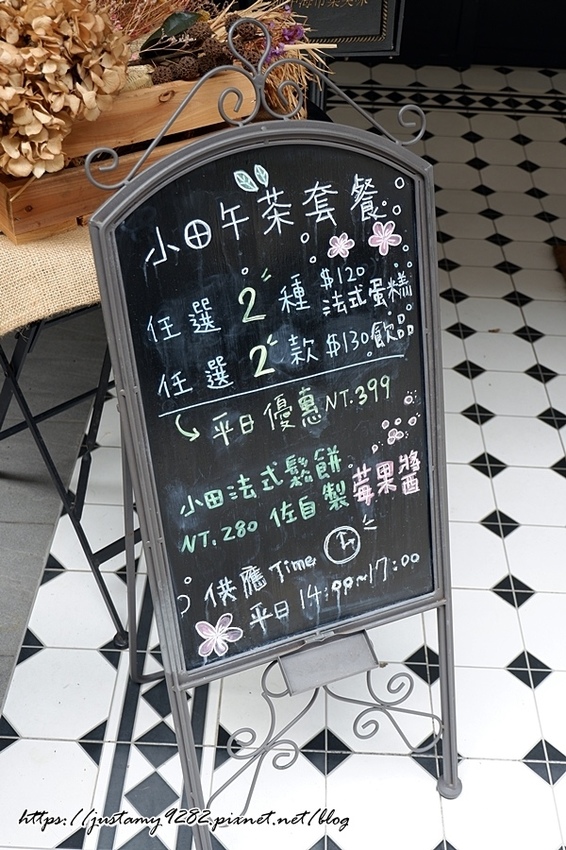 小田午茶套餐
任選2種 $120 法式蛋糕
任選2款 $130飲品
平日優惠NT.399
小田法式鬆餅
NT.280 佐自製莓果將酉
供應Time
平日14:00~17:00
https://justamy9282.pixnet.net/blog